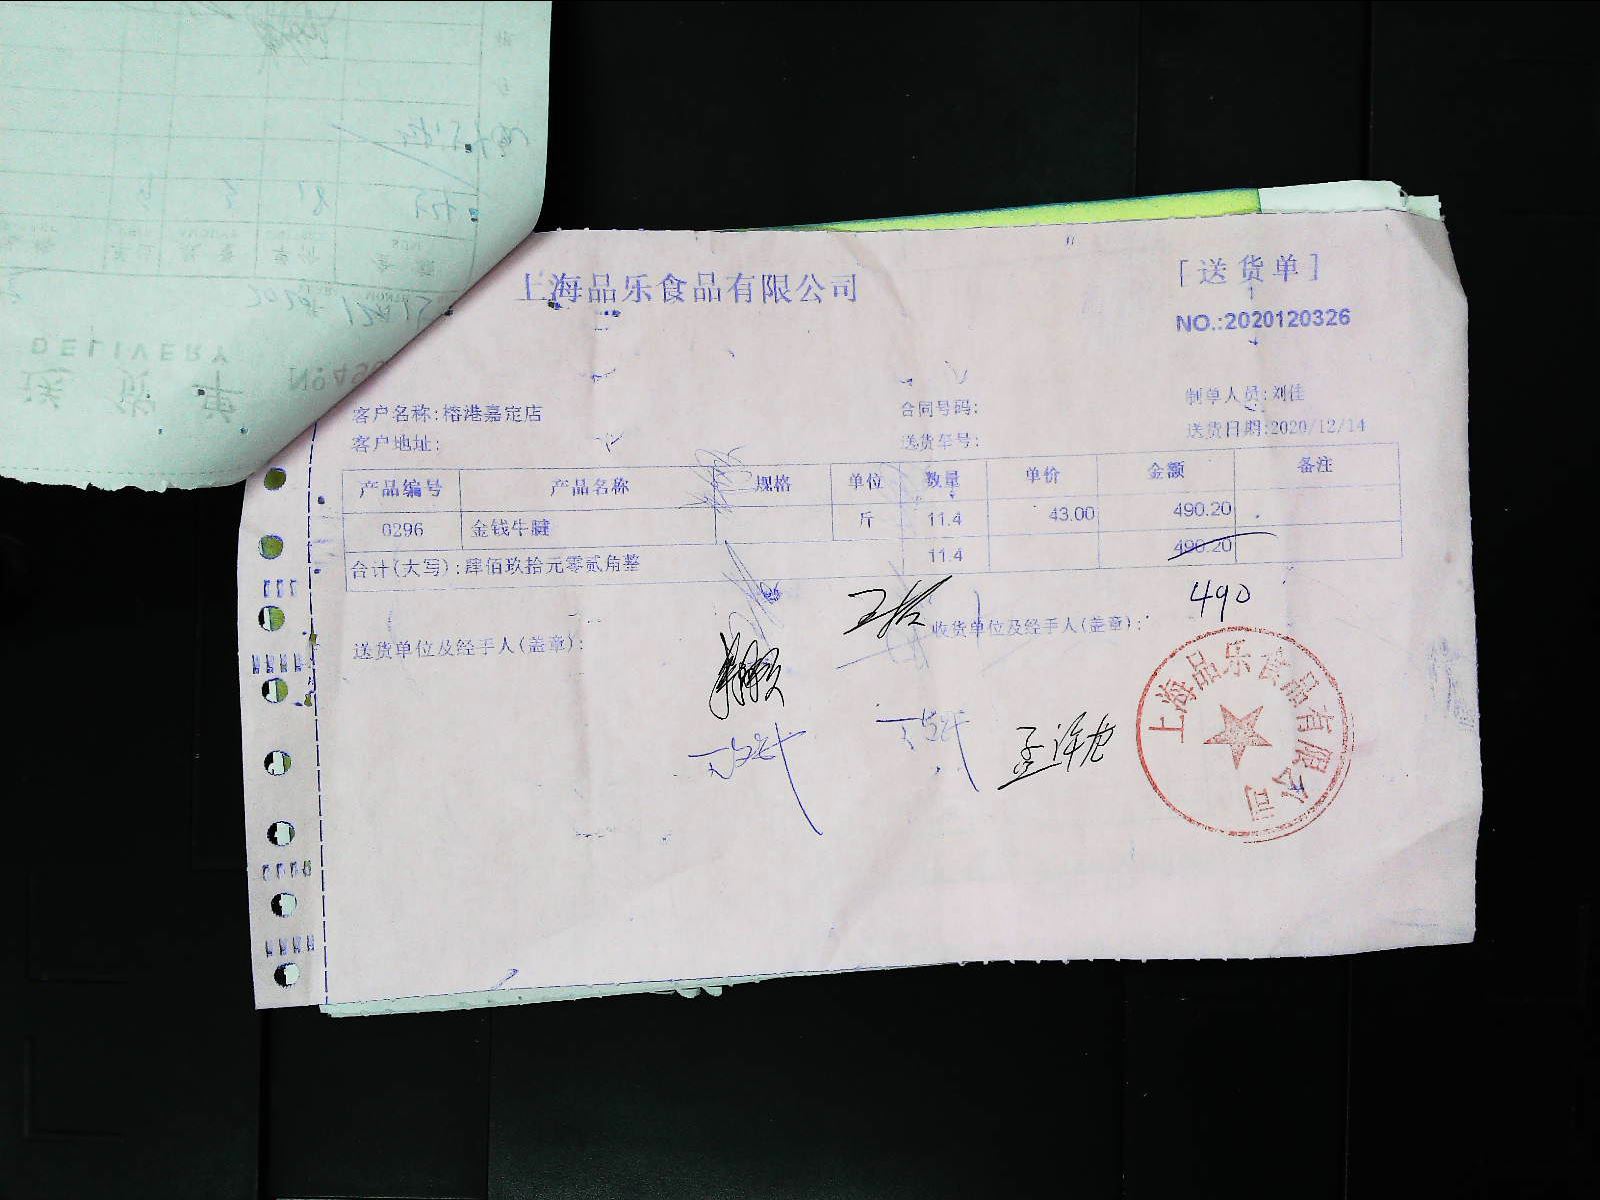 上海品乐食品有限公司
[送货单]
NO.:2020120326
客户名称:榕港嘉定店 合同号码: 制单人员:刘佳
客户地址: 送货车号: 送货日期:2020/12/14
产品编号 产品名称 规格 单位 数量 单价 金额 备注
0296 金钱牛腱 斤 11.4 43.00 490.20
合计(大写):肆佰玖拾元零贰角整 11.4 490.20
490
送货单位及经手人(盖章): 收货单位及经手人(盖章):
上海品乐食品有限公司
DELIVERY
送货单